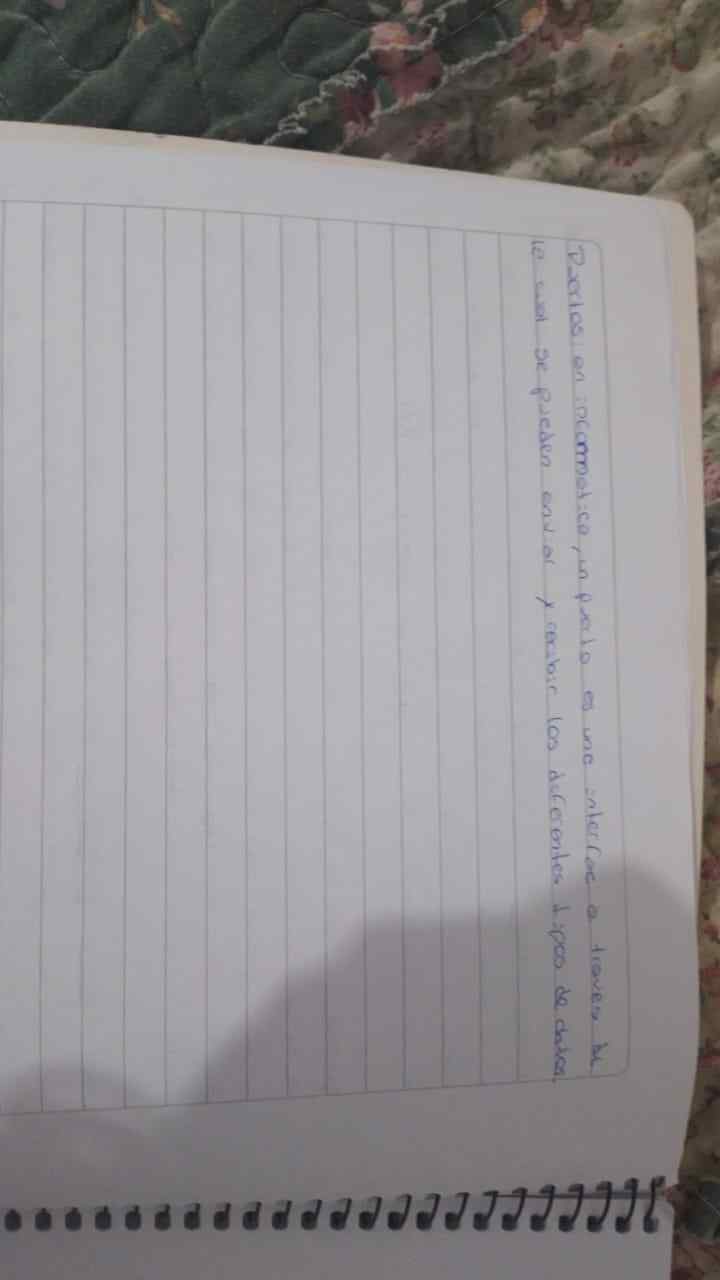 Puertos: en informatica, un puerto es una interfac a traves de
la cual se pueden enviar y recibir los diferentes tipos de datos.